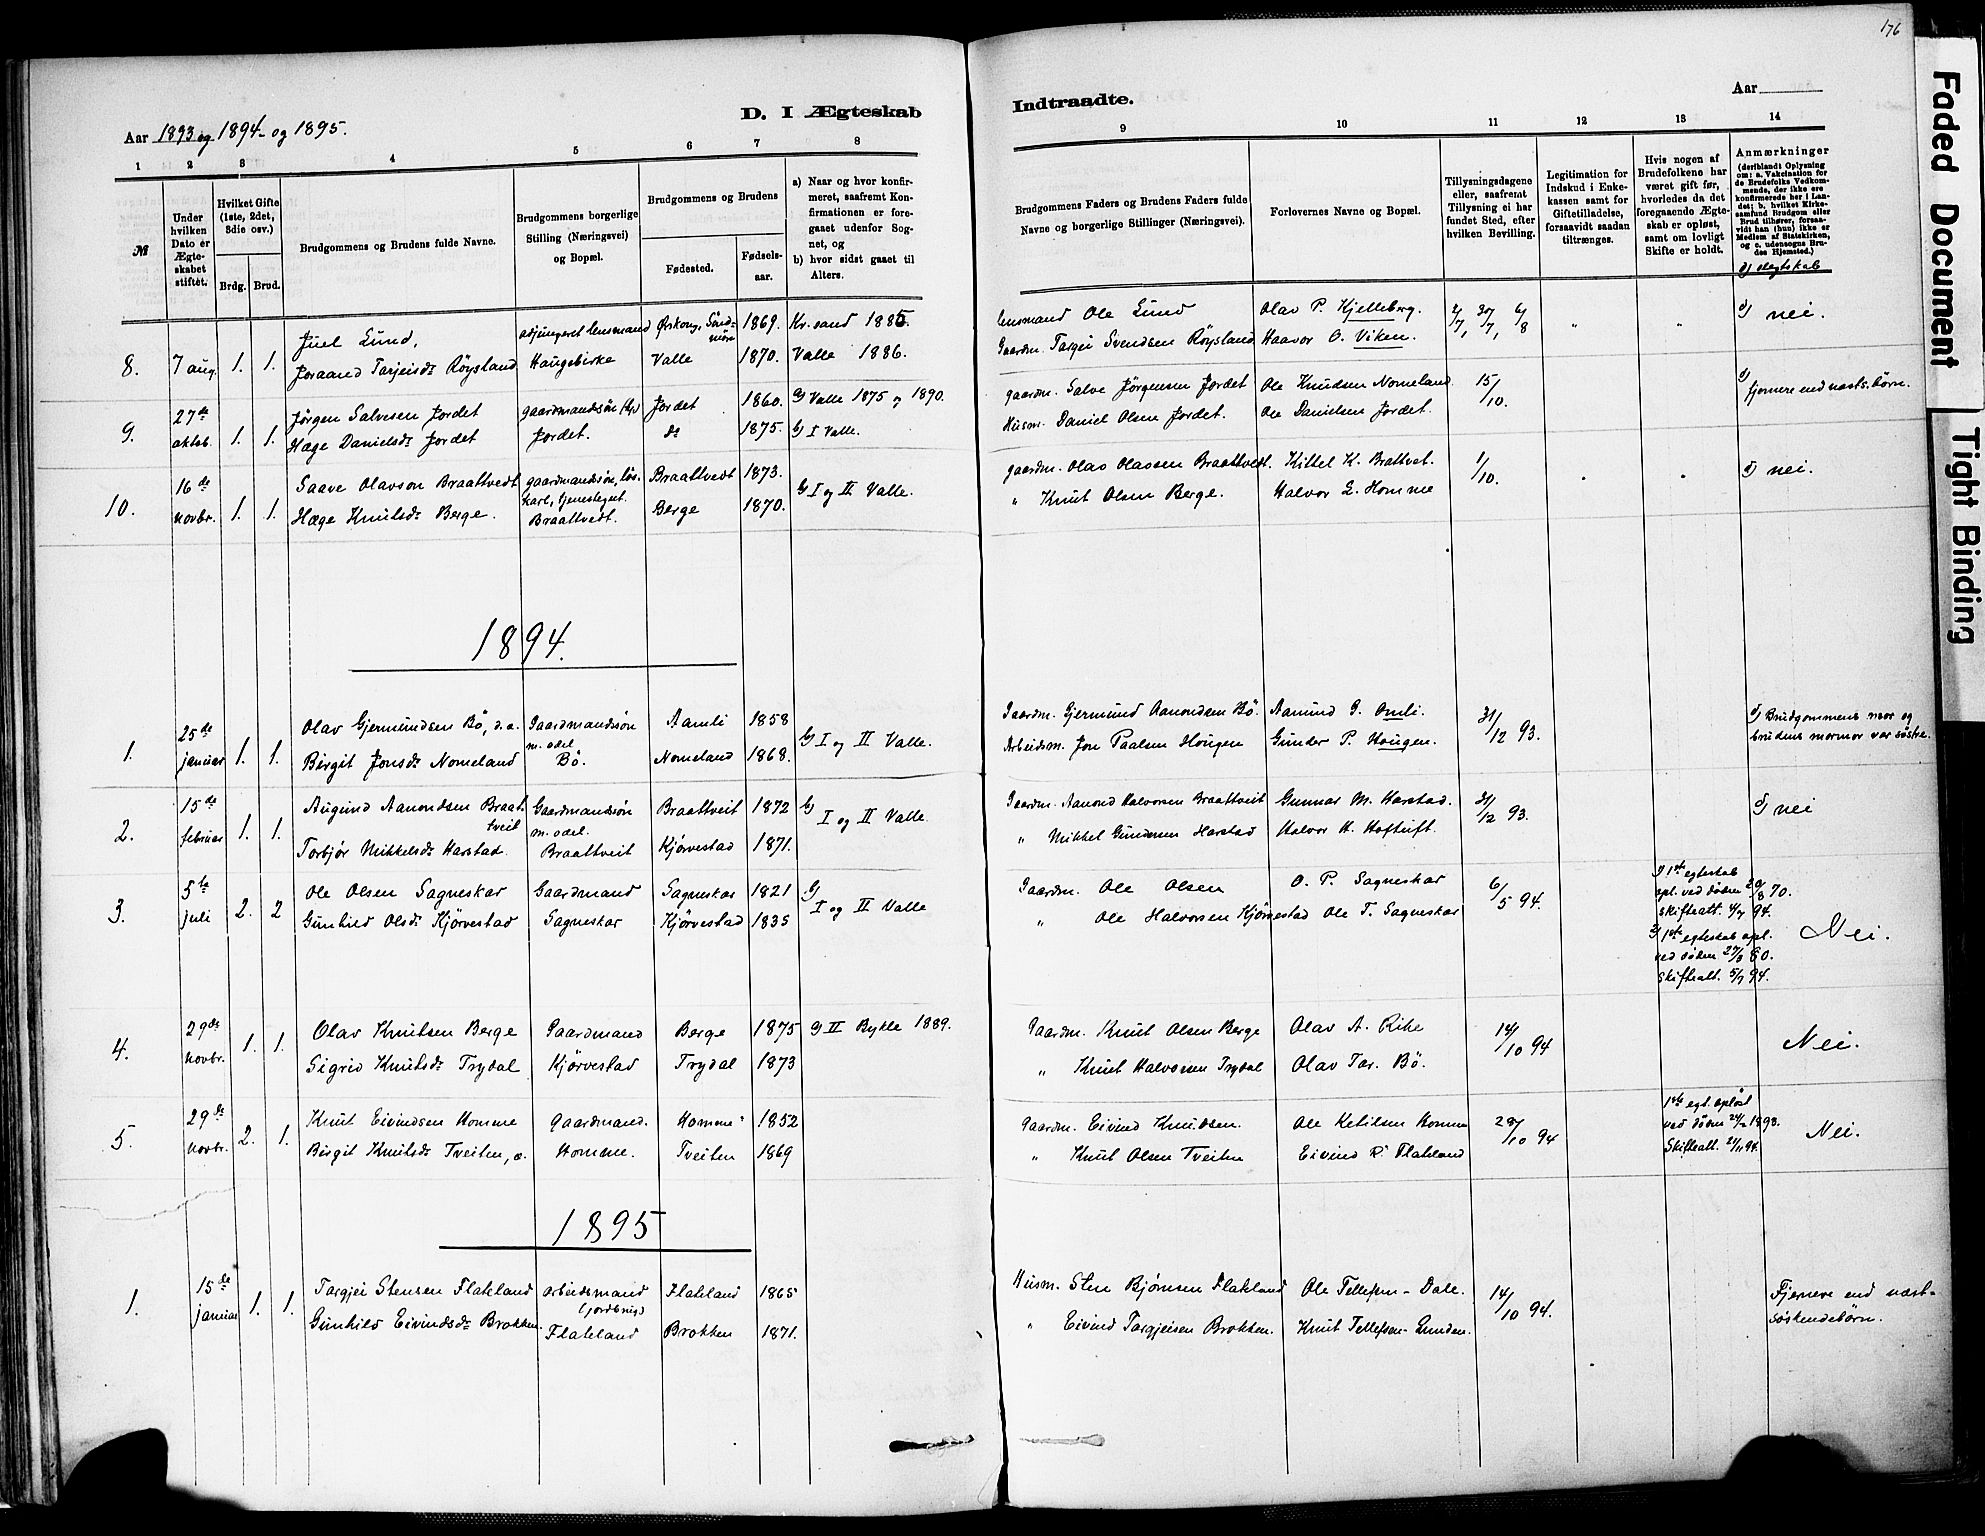 176
Faded Document
Tight Binding
D. I Ægteskab
Indtraadte.
Aar 1893 og 1894 og 1895.
Aar
1 2 3 4 5 6 7 8
9 10 11 12 13 14
№
Under hvilken Dato er Ægteskabet stiftet.
Hvilket Gifte (1ste, 2det, 3die osv.)
Brdg. Brud.
Brudgommens og Brudens fulde Navne.
Brudgommens borgerlige Stilling (Næringsvei) og Bopæl.
Brudgommens og Brudens
Fødested.
Fødselsaar.
a) Naar og hvor konfirmeret, saafremt Konfirmationen er foregaaet udenfor Sognet, og
b) hvor sidst gaaet til Alters.
Brudgommens Faders og Brudens Faders fulde Navne og borgerlige Stillinger (Næringsvei).
Forlovernes Navne og Bopæl.
Tillysningsdagene eller, saafremt Tillysning ei har fundet Sted, efter hvilken Bevilling.
Legitimation for Indskud i Enkekassen samt for Giftetilladelse, forsaavidt saadan tiltrænges.
Hvis nogen af Brudefolkene har været gift før, hvorledes da det foregaaende Ægteskab er opløst, samt om lovligt Skifte er holdt.
Anmærkninger
(deriblandt Oplysning om: a. Vakcination for de Brudefolks Vedkommende, der ikke ere konfirmerede her i Landet; b. hvilket Kirkesamfund Brudgom eller Brud tilhører, forsaavidt han (hun) ikke er Medlem af Statskirken, og c. udensogns Brudes Hjemsted.)
d) slegtskab
8. 7 aug. 1. 1. Juel Lund, adjungeret lensmand Ørskoug, Søndmøre 1869. Kr.sand 1885. lensmand Ole Lund Olav P. Kjelleberg. 2/7, 30/7, 6/8 " " d) nei.
Joraand Tarjeisdr Røysland Haugebirke Valle 1870. Valle 1886. Gaardm. Targei Svendsen Røysland Haavor O. Viken.
9. 27de oktob. 1. 1. Jørgen Salvesen Jordet gaardmandsøn Jordet 1860. Valle 1875 1890. gaardm. Salve Jørgensen Jordet Ole Knudsen Nomeland 15/10. d) fjernere end nests.børn.
Hæge Danielsdr Jordet Jordet. dr 1875. I Valle. Husm. Daniel Olsen Jordet. Ole Danielsen Jordet.
10. 16de novbr. 1. 1. Saave Olavson Braattvedt gaardmandsøn, løskarl, tjenestegut. Braattvedt 1873. I og II Valle. gaardm. Olav Olavsen Braattvedt. Kittel K. Brattvet. 1/10. d) nei.
Hæge Knutsdr Berge. Braattvedt. Berge 1870. " Knut Olsen Berge. Halvor L. Homme
1894.
1. 25de januar 1. 1. Olav Gjermundsen Bø, d.a. Gaardmandssøn m. odel Aamli 1858 I og II Valle. Gaardm. Gjermund Aanondsen Bø. Aamund G. Omli. 31/12 93. d) Brudgommens mor og brudens mormor var søstre.
Birgit Jonsdr Nomeland Bø. Nomeland 1868. Arbeidsm. Jon Paalsen Hougen Gunder P. Hougen.
2. 15de februar 1. 1. Augund Aanondsen Braattveit Gaardmandssøn m. odel. Braattveit 1872 I og II Valle Gaardm. Aanond Halvorsen Braattveit Gunnar M. Harstad. 31/12 93. d) nei
Torbjør Mikkelsdr Harstad. Braattveit Kjørvestad 1871. " Mikkel Gunnersen Harstad Halvor H. Hoftuft.
3. 5te juli 2. 2 Ole Olsen Sagneskar Gaardmand Sagneskar 1821 I og II Valle Gaardm. Ole Olsen O. P. Sagneskar 6/5 94. 1) 1ste egteskab opl. ved døden 20/8 70. skifteatt. 4/7 94.
Gunhild Olsdr Kjørvestad Sagneskar Kjørvestad 1835 " Ole Halvorsen Kjørvestad Ole T. Sagneskar 2) 1ste egteskab opl. ved døden 27/3 60. Skifteatt. 5/7 94. Nei.
4. 29de novbr. 1. 1. Olav Knutsen Berge Gaardmand Berge 1875 II Bykle 1889. Gaardm. Knut Olsen Berge Olav A. Rike 14/10 94 Nei.
Sigrid Knutsdr Trydal Kjørvestad Trydal 1873 " Knut Halvorsen Trydal Olav Tar. Bø.
5. 29de novbr. 2. 1. Knut Eivindsen Homme Gaardmand. Homme 1852 Gaardm. Eivind Knudsen. Ole Ketilsen Homme 28/10 94 1ste egt. opløst ved døden 1893. Skifteatt. 94. Nei.
Birgit Knutsdr Tveiten, Homme. Tveiten 1869 " Knut Olsen Tveiten Eivind Flateland
1895
1. 15de januar 1. 1. Targjei Stensen Flateland arbeidsmand (jordbrug) Flateland 1865 Husm. Sten Bjørnsen Flateland Ole Tellefsen - Dale. 14/10 94. Fjernere end nestsøskendebørn.
Gunhild Eivindsdr Brokken. Flateland Brokken 1871. " Eivind Targjeisen Brokken. Knut Tellefsen - Lunden.